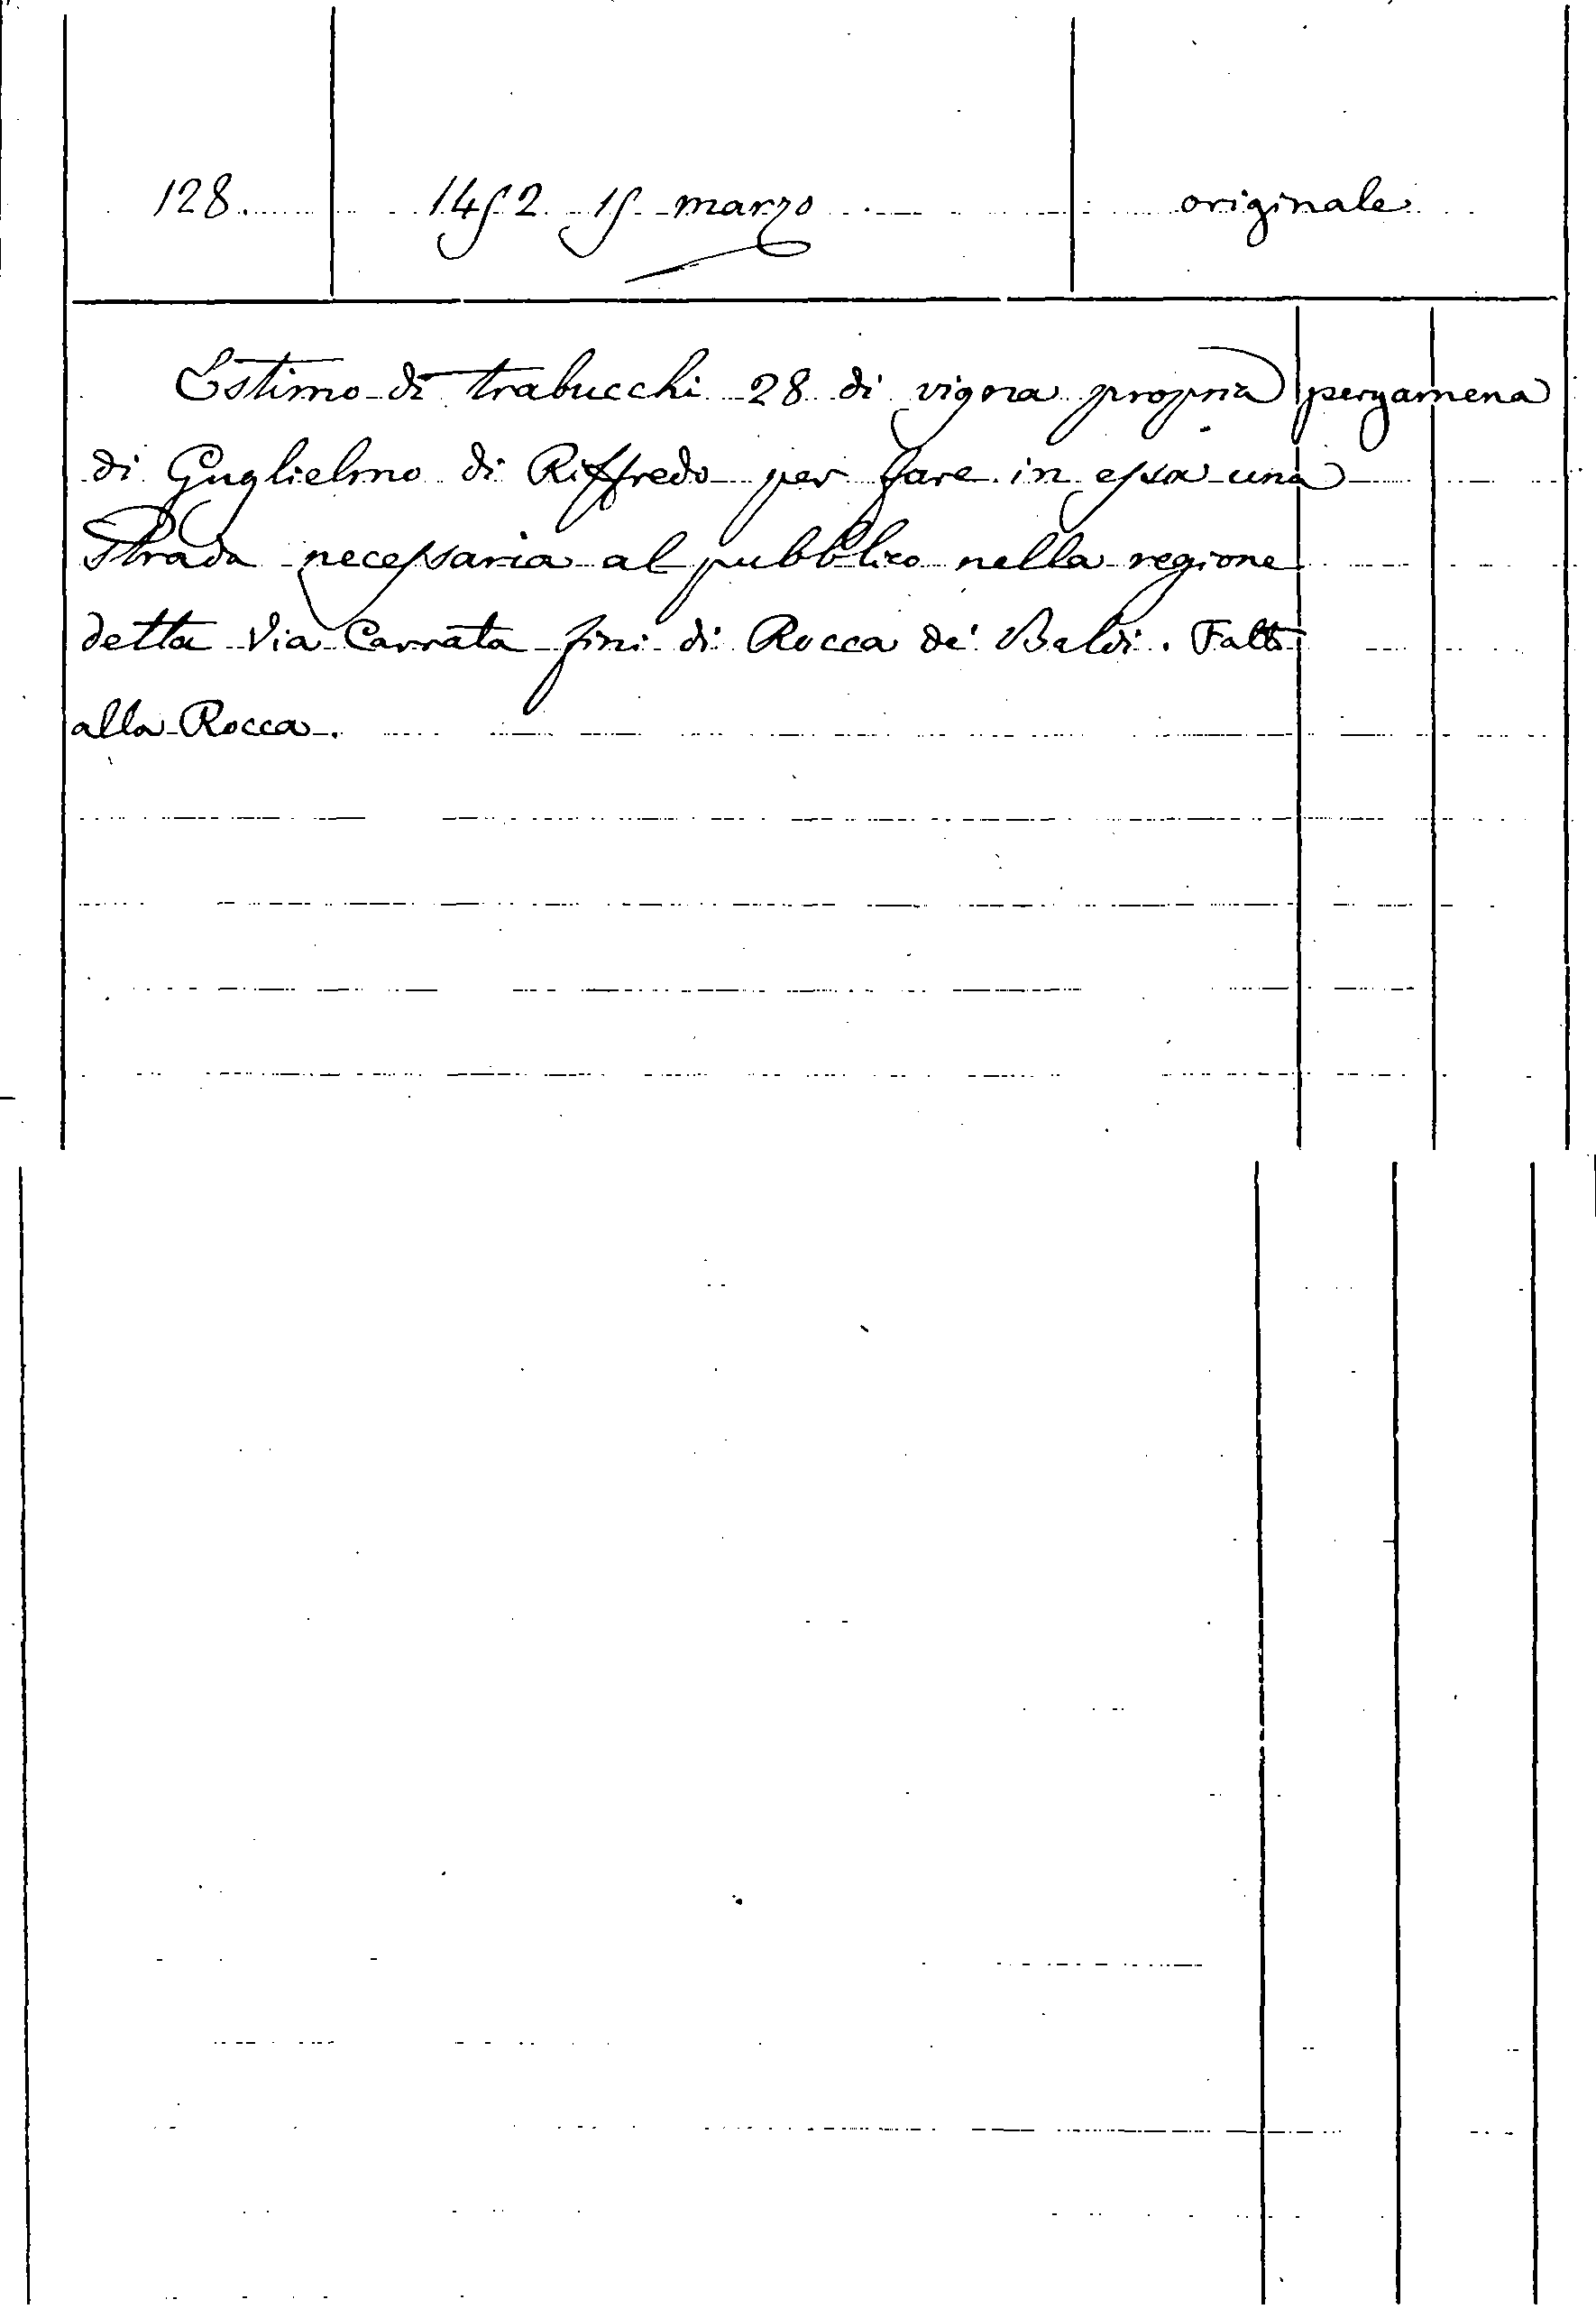 128. 1452 15 marzo originale
Estimo di trabucchi 28 di vigna propria pergamena
di Guglielmo di Riffredo per fare in essa una
Strada necessaria al pubblico nella regione
detta Via Carrata fini di Rocca de' Baldi. Fatto
alla Rocca.